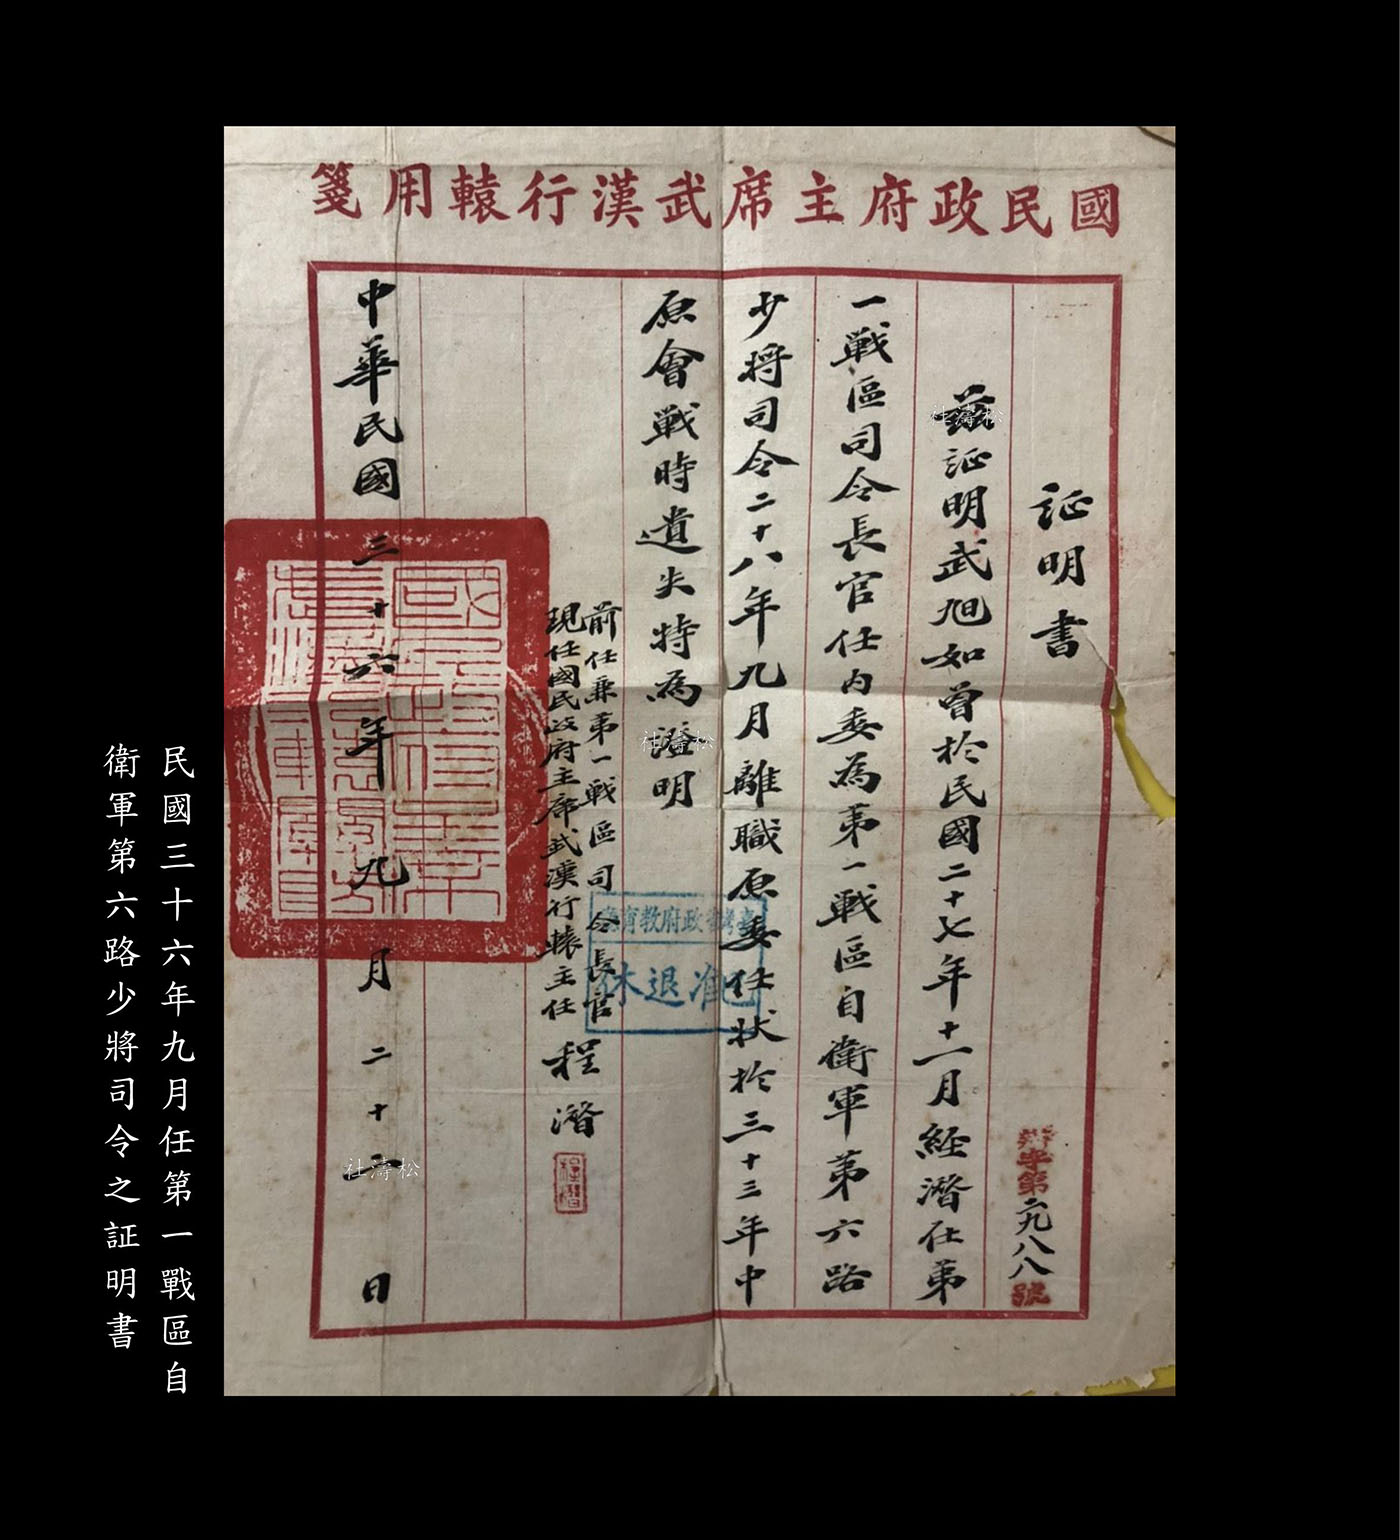 國民政府主席武漢行轅用箋
証明書
第二九八八號
茲証明武旭如曾於民國二十七年十一月經潛任第
一戰區司令長官任內委為第一戰區自衛軍第六路
少將司令二十八年九月離職原委任狀於三十三年中
原會戰時遺失特為證明
前任兼第一戰區司令長官
現任國民政府主席武漢行轅主任程潛
程潛
臺灣省政府教育廳
准退休
中華民國三十六年九月二十二日
民國三十六年九月任第一戰區自
衛軍第六路少將司令之証明書
社濤松
社濤松
社濤松